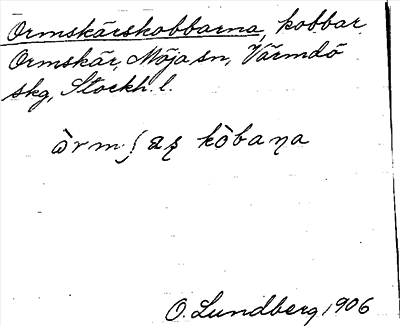 Ormskärskobbarna, kobbar
Ormskär, Möja sn, Värmdö
skg, Stockh. l.
òrm ʃ aʂ kòbaɳa
O. Lundberg 1906